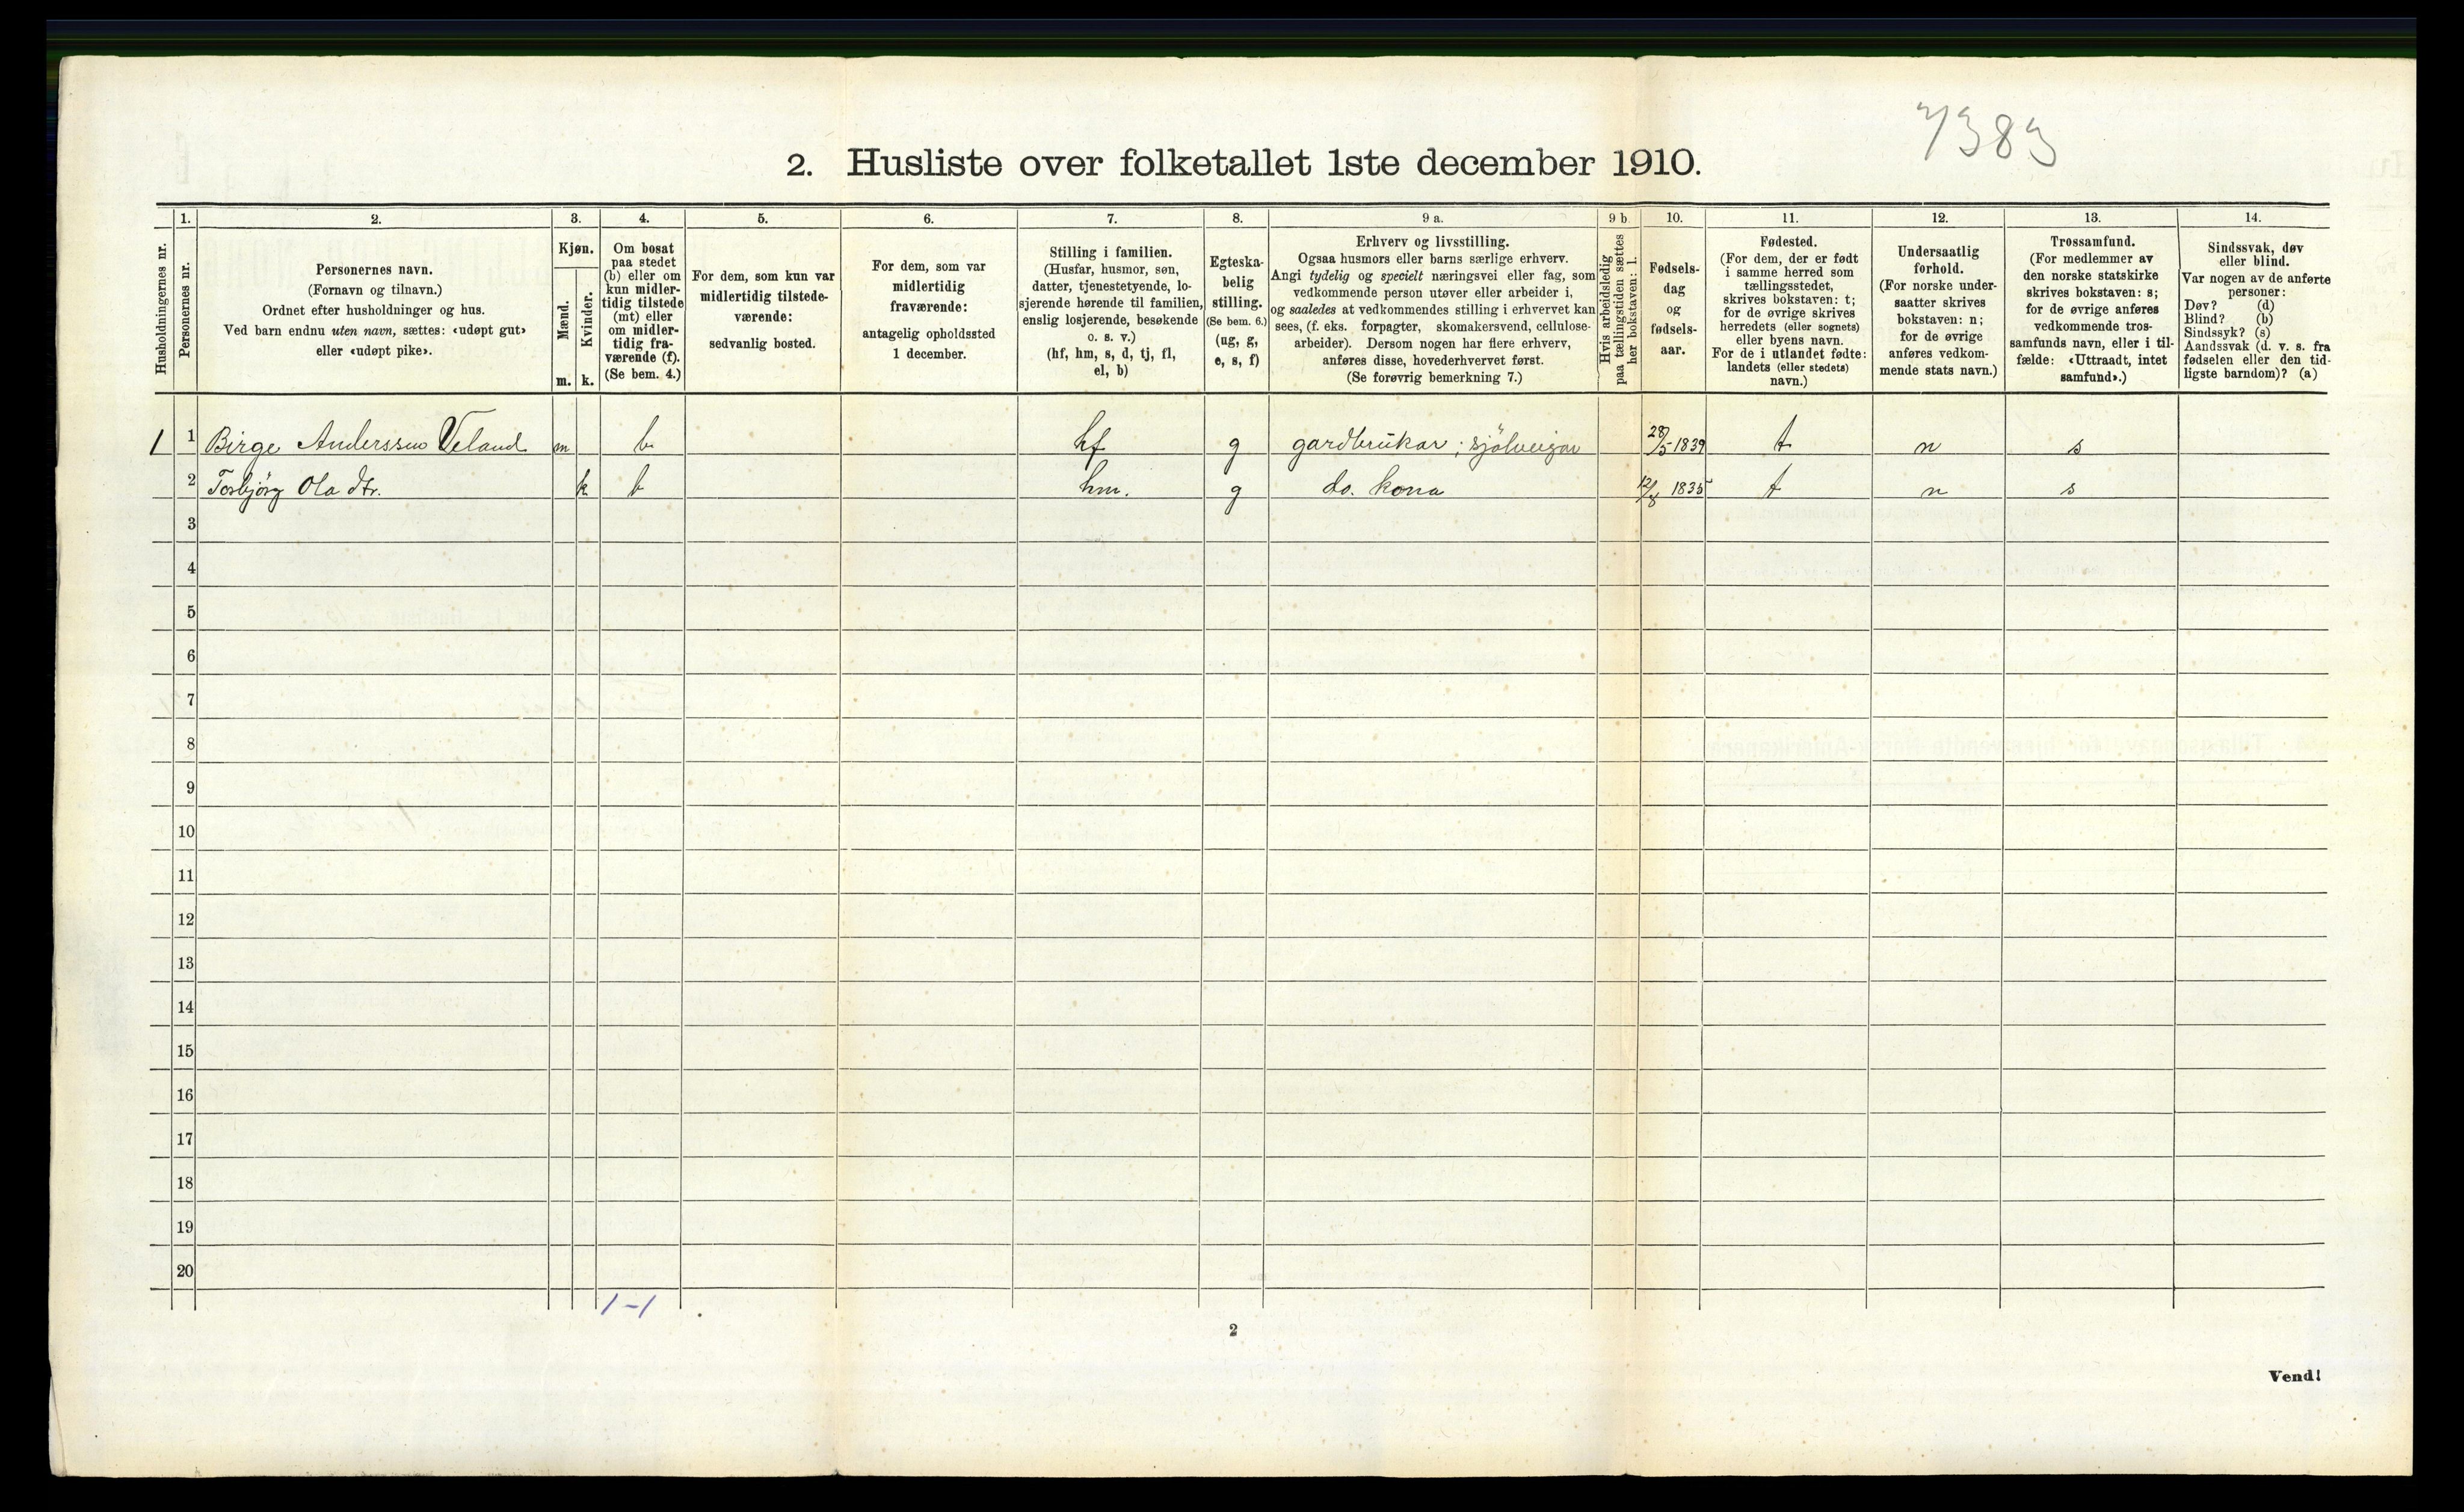 7383
2. Husliste over folketallet 1ste december 1910.
Husholdningernes nr.
1.
Personernes nr.
2.
Personernes navn.
(Fornavn og tilnavn.)
Ordnet efter husholdninger og hus.
Ved barn endnu uten navn, sættes: «udøpt gut»
eller «udøpt pike».
3.
Kjøn.
Mænd.
Kvinder.
m. k.
4.
Om bosat
paa stedet
(b) eller om
kun midler-
tidig tilstede
(mt) eller
om midler-
tidig fra-
værende (f).
(Se bem. 4.)
5.
For dem, som kun var
midlertidig tilstede-
værende:
sedvanlig bosted.
6.
For dem, som var
midlertidig
fraværende:
antagelig opholdssted
1 december.
7.
Stilling i familien.
(Husfar, husmor, søn,
datter, tjenestetyende, lo-
sjerende hørende til familien,
enslig losjerende, besøkende
o. s. v.)
(hf, hm, s, d, tj, fl,
el, b)
8.
Egteska-
belig
stilling.
(Se bem. 6.)
(ug, g,
e, s, f)
9 a.
Erhverv og livsstilling.
Ogsaa husmors eller barns særlige erhverv.
Angi tydelig og specielt næringsvei eller fag, som
vedkommende person utøver eller arbeider i,
og saaledes at vedkommendes stilling i erhvervet kan
sees, (f. eks. forpagter, skomakersvend, cellulose-
arbeider). Dersom nogen har flere erhverv,
anføres disse, hovederhvervet først.
(Se forøvrig bemerkning 7.)
9 b
Hvis arbeidsledig
paa tællingstiden sættes
her bokstaven: l.
10.
Fødsels-
dag
og
fødsels-
aar.
11.
Fødested.
(For dem, der er født
i samme herred som
tællingsstedet,
skrives bokstaven: t;
for de øvrige skrives
herredets (eller sognets)
eller byens navn.
For de i utlandet fødte:
landets (eller stedets)
navn.)
12.
Undersaatlig
forhold.
(For norske under-
saatter skrives
bokstaven: n;
for de øvrige
anføres vedkom-
mende stats navn.)
13.
Trossamfund.
(For medlemmer av
den norske statskirke
skrives bokstaven: s;
for de øvrige anføres
vedkommende tros-
samfunds navn, eller i til-
fælde: «Uttraadt, intet
samfund».)
14.
Sindssvak, døv
eller blind.
Var nogen av de anførte
personer:
Døv? (d)
Blind? (b)
Sindssyk? (s)
Aandssvak (d. v. s. fra
fødselen eller den tid-
ligste barndom)? (a)
1 1 Birge Anderssen Veland m b hf g gardbrukar; sjölveigar 28/5 1839 t n s
2 Torbjörg Ola dtr. k b hm. g do. kona 12/8 1835 t n s
3
4
5
6
7
8
9
10
11
12
13
14
15
16
17
18
19
20
1-1
2
Vend!